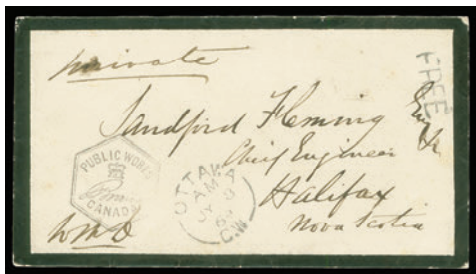 private
FREE
Sandford Fleming
Chief Engineer
Halifax
Nova Scotia
PUBLIC WORKS
CANADA
OTTAWA
AM
C.W